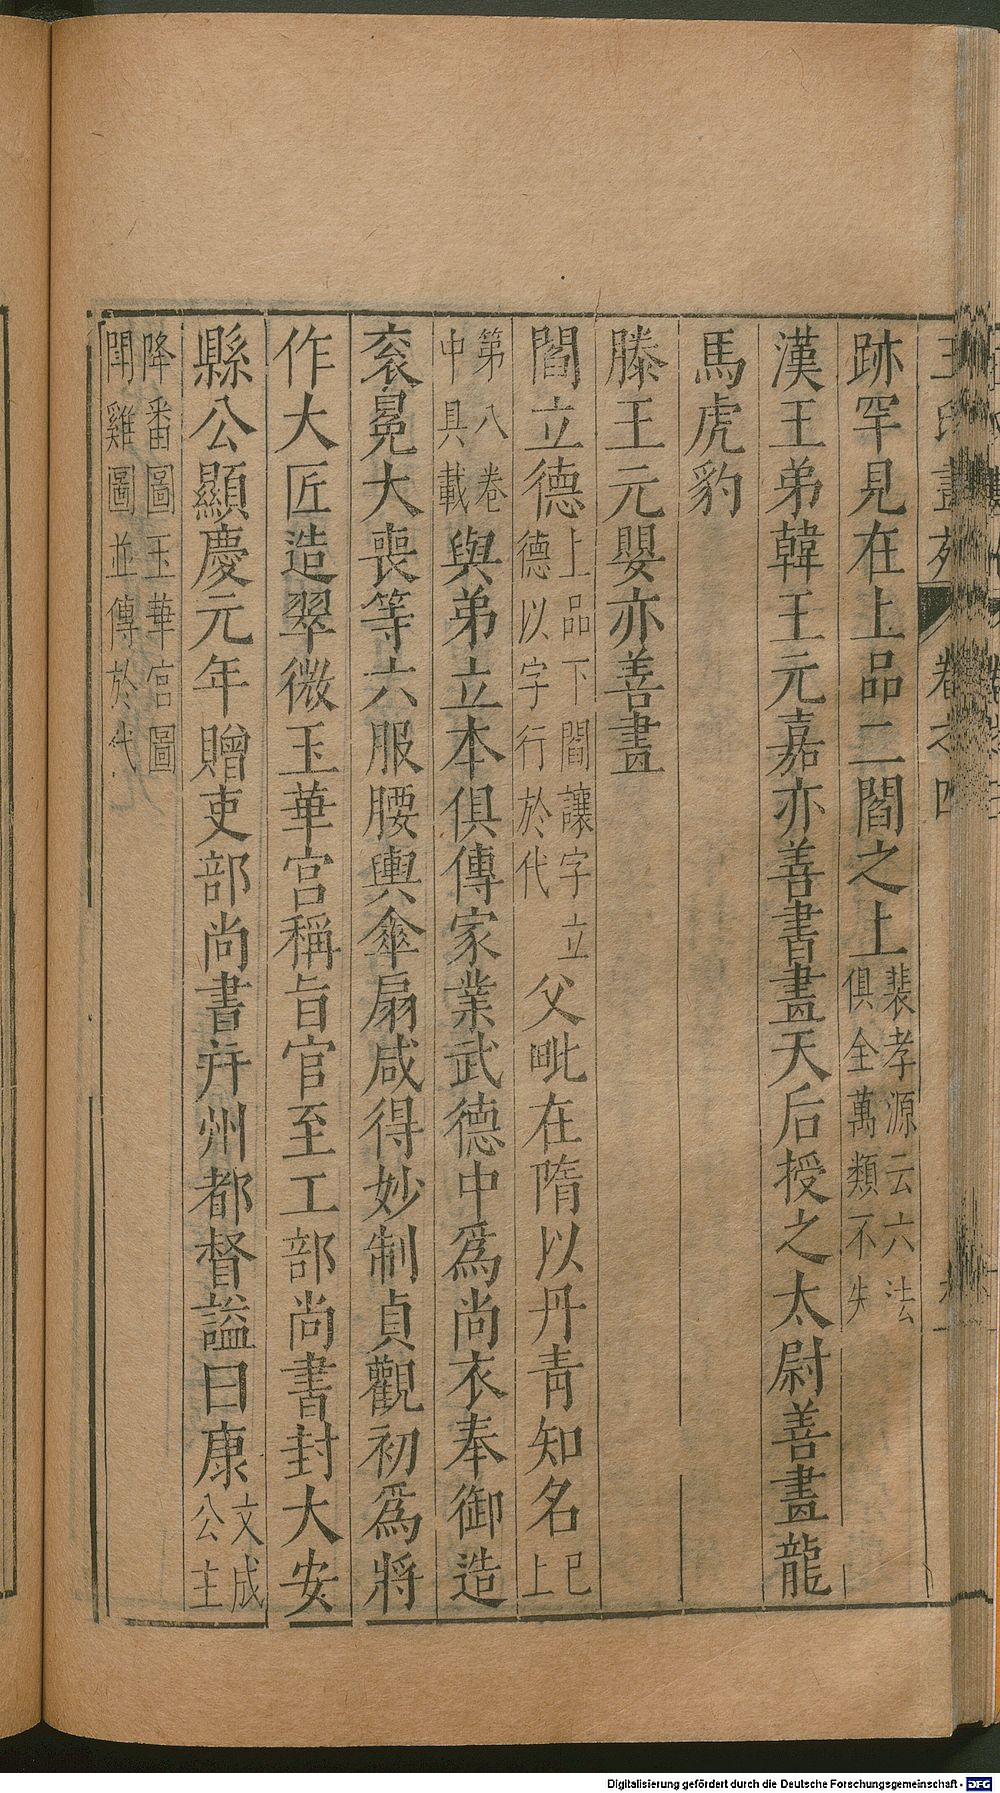 王氏畫苑 卷之四
跡罕見在上品二閻之上裴孝源云六法俱全萬類不失
漢王弟韓王元嘉亦善書畫天后授之太尉善畫龍
馬虎豹
滕王元嬰亦善畫
閻立德上品下閻讓字立德以字行於代父毗在隋以丹青知名已上
第八卷中具載與弟立本俱傳家業武德中爲尚衣奉御造
衮冕大裘等六服腰輿傘扇咸得妙制貞觀初爲將
作大匠造翠微玉華宮稱旨官至工部尚書封大安
縣公顯慶元年贈吏部尚書幷州都督謚曰康文成公主
降番圖玉華宮圖鬪雞圖並傳於代
Digitalisierung gefördert durch die Deutsche Forschungsgemeinschaft - DFG